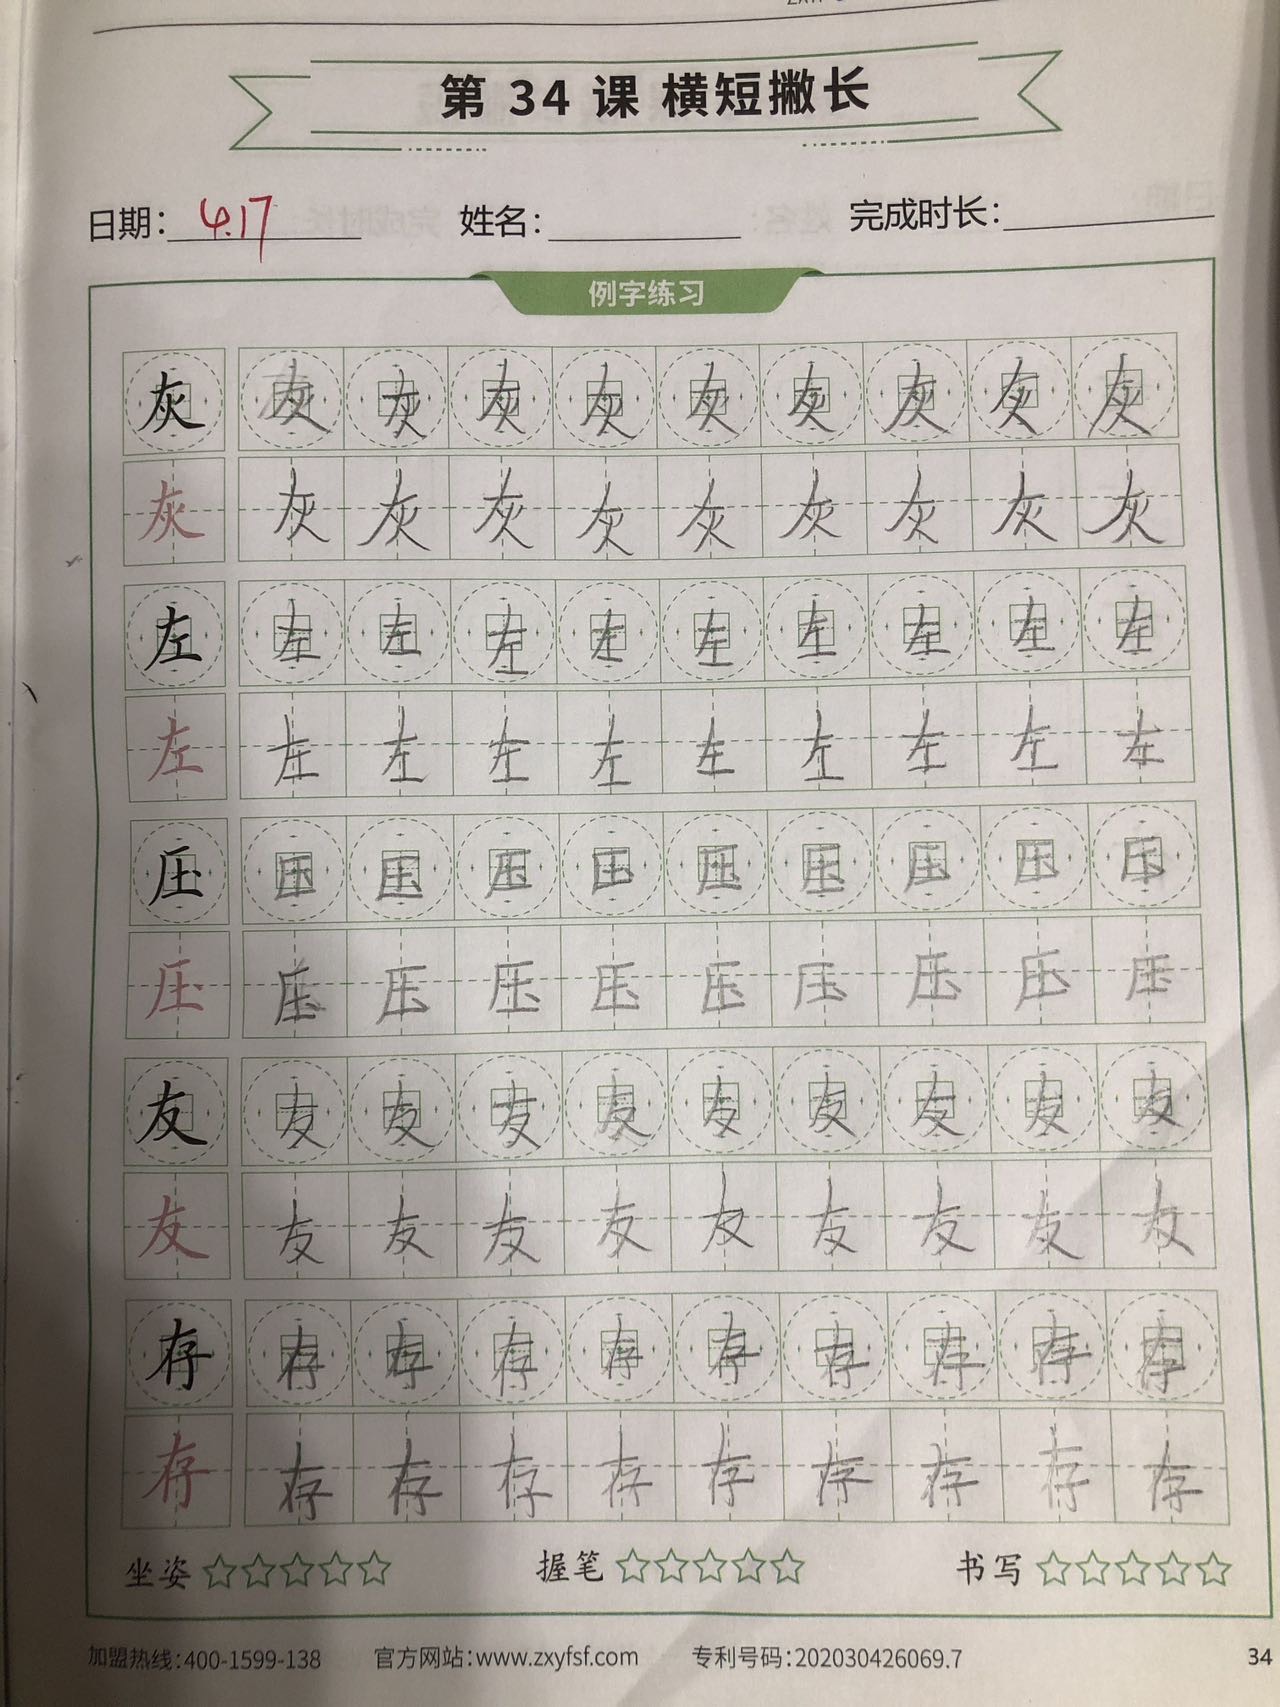 第 34 课 横短撇长
日期: 4.17 姓名: 完成时长:
例字练习
灰 灰 灰 灰 灰 灰 灰 灰 灰 灰
灰 灰 灰 灰 灰 灰 灰 灰 灰 灰
左 左 左 左 左 左 左 左 左 左
左 左 左 左 左 左 左 左 左 左
压 压 压 压 压 压 压 压 压 压
压 压 压 压 压 压 压 压 压 压
友 友 友 友 友 友 友 友 友 友
友 友 友 友 友 友 友 友 友 友
存 存 存 存 存 存 存 存 存 存
存 存 存 存 存 存 存 存 存 存
坐姿 ☆☆☆☆☆ 握笔 ☆☆☆☆☆ 书写 ☆☆☆☆☆
加盟热线:400-1599-138 官方网站:www.zxyfsf.com 专利号码:202030426069.7 34